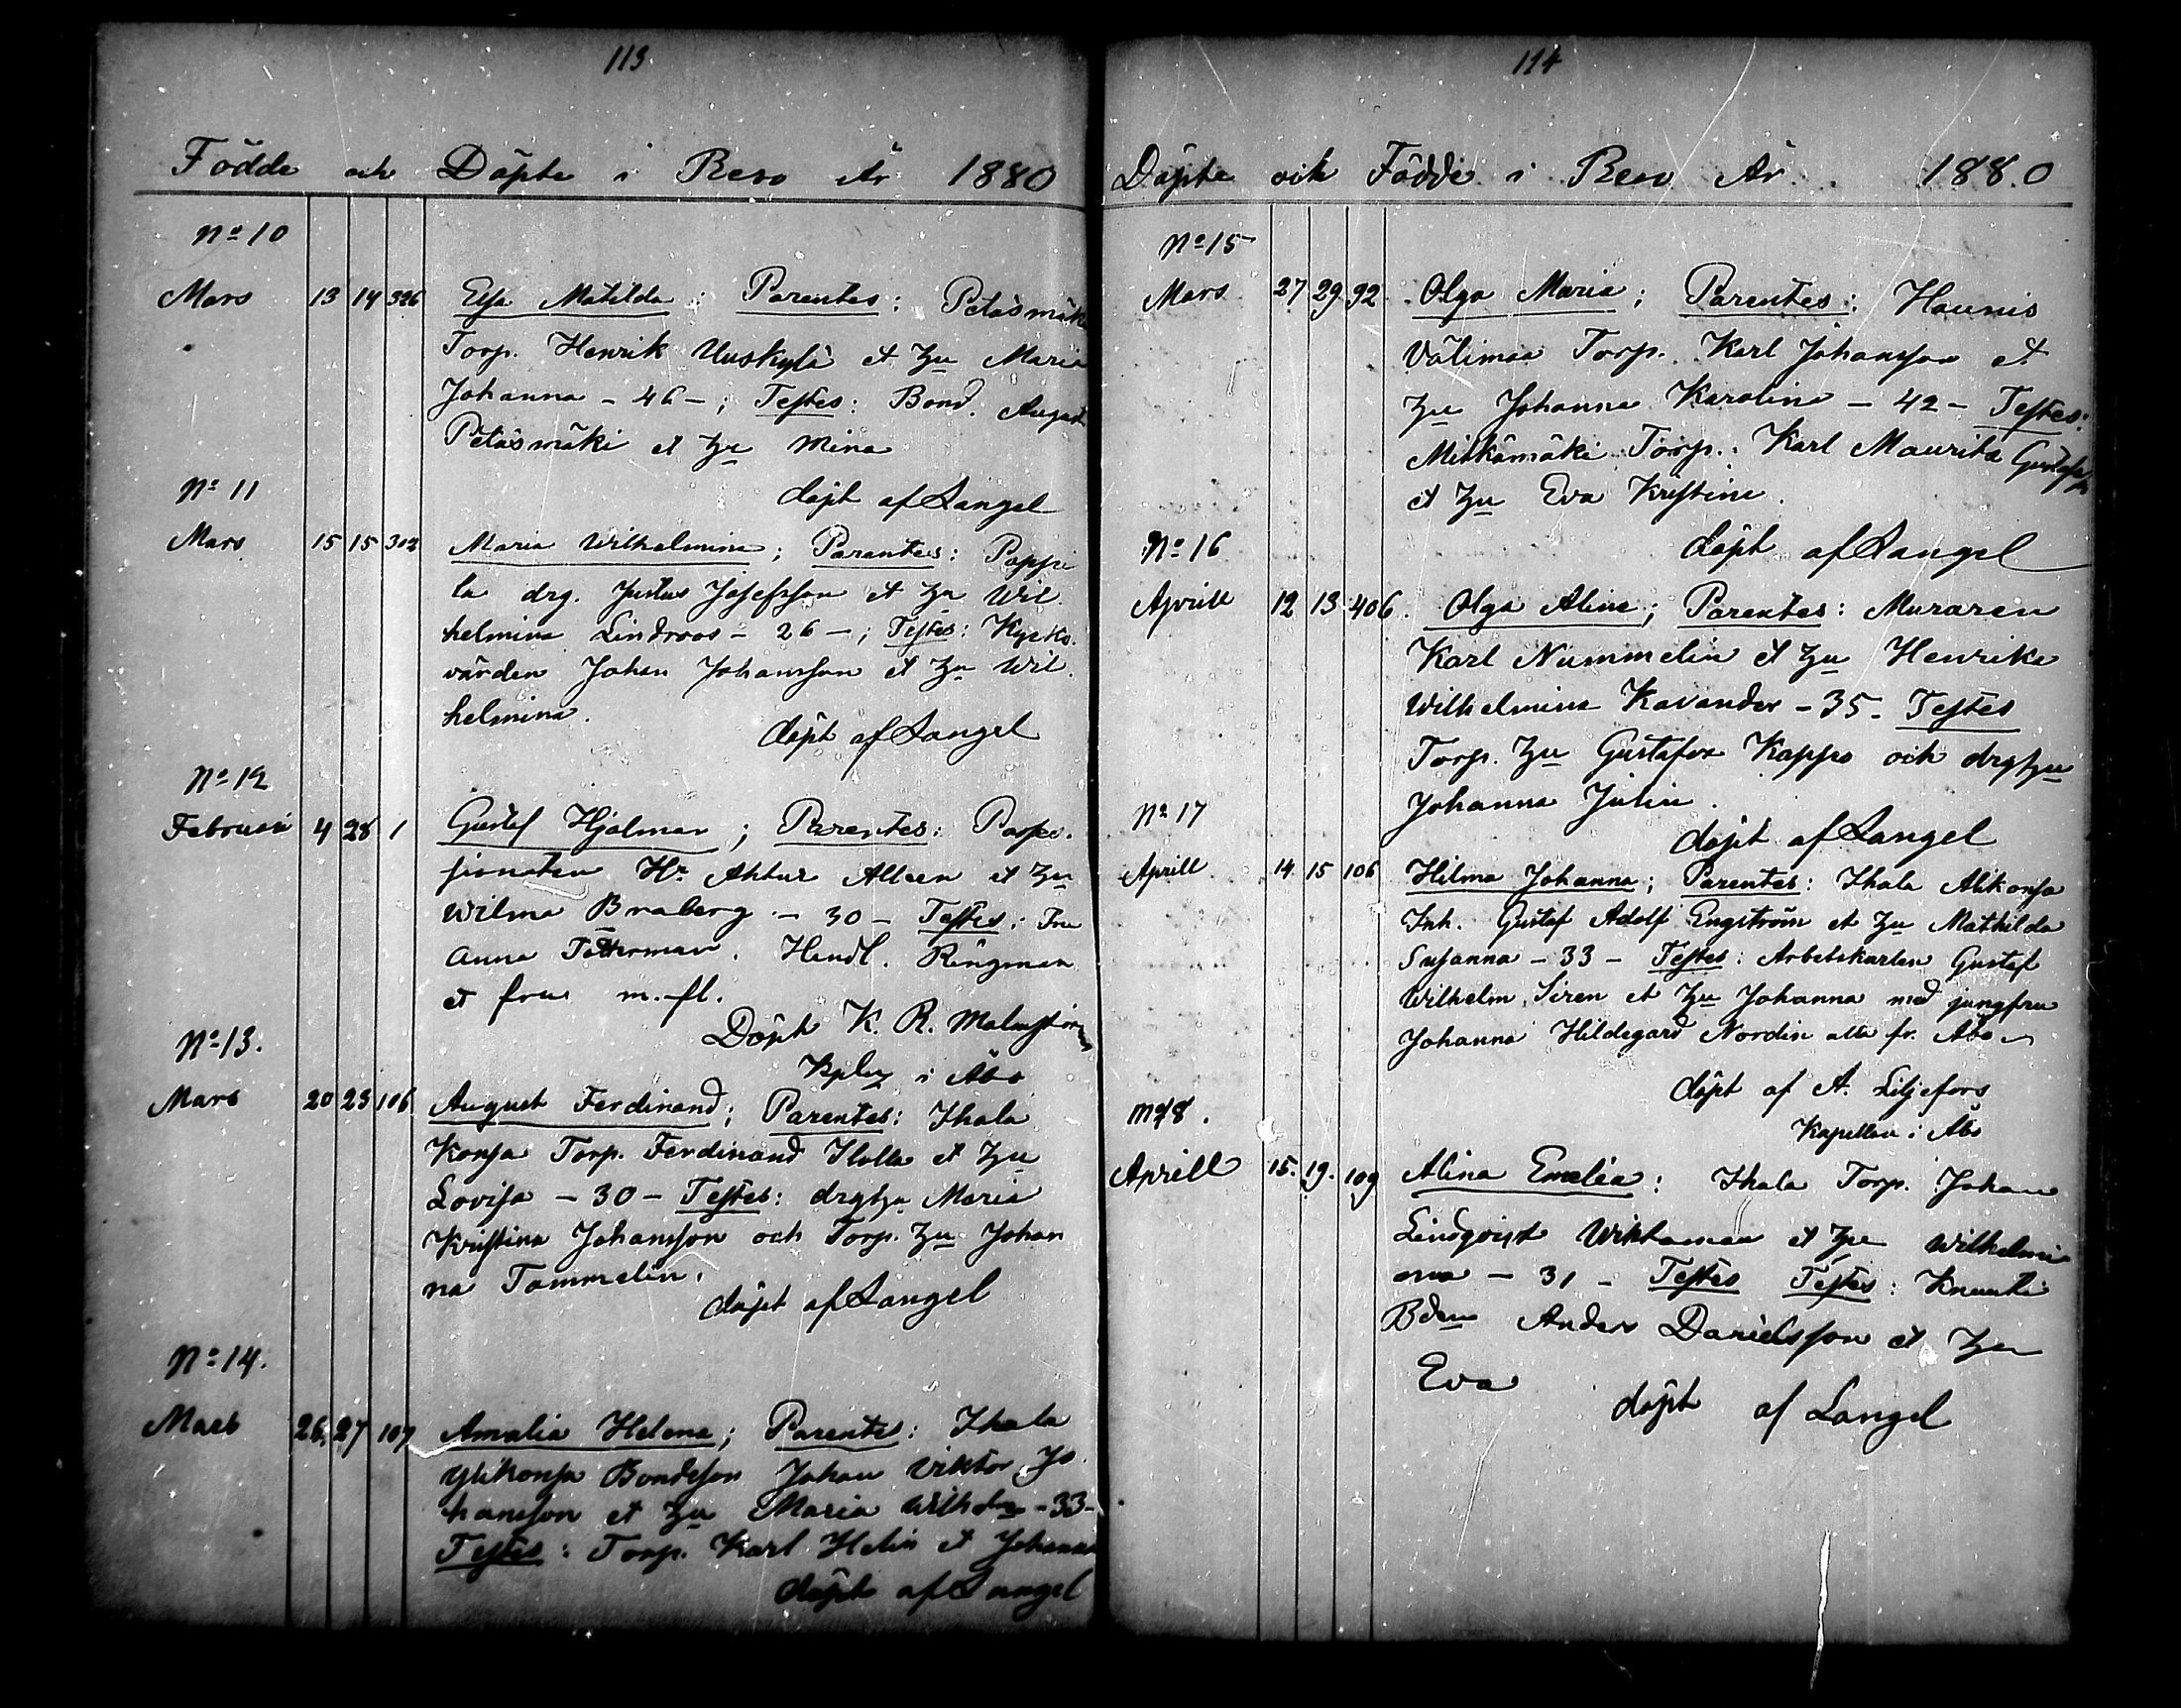 113
Födde och Döpte i Reso År 1880
No 10
Mars 13 14 326 Elsa Matilda; Parentes: Petäsmäki
Torp. Henrik Uuskylä et hu Maria
Johanna - 46 -; Testes: Bond. August
Petäsmäki et hu Mina
döpt af Langel
No 11
Mars 15 15 302 Maria Wilhelmina; Parentes: Poppi
la drg. Justus Josefsson et hu Wil
helmina Lindroos - 26 -; Testes: Kyrko
värden Johan Johansson et hu Wil
helmina.
döpt af Langel
No 12
Februari 4 28 1 Gustaf Hjalmar; Parentes: Posses
sionaten Hr Ahtur Alleen et hu
Wilma Braberg - 30 - Testes: Fru
Anna Tötterman, Handl. Ringman
et fru m. fl.
Döpt K. R. Malmström
Kpln i Åbo
No 13.
Mars 20 23 106 August Ferdinand; Parentes: Ihala
Konsa Torp. Ferdinand Ilolla et hu
Lovisa - 30 - Testes: drghu Maria
Kristina Johansson och Torp. hu Johan
na Tammelin.
döpt af Langel
No 14.
Mars 26. 27 107 Amalia Helena; Parentes: Ihala
Ylikonsa Bondeson Johan Viktor Jo
hansson et hu Maria Wilhelm - 33 -
Testes: Torp. Karl Helin et Johanna
döpt af Langel
114
Döpte och Födde i Reso År 1880
No 15
Mars 27 29 92 Olga Maria; Parentes: Haunis
Välimaa Torp. Karl Johansson et
hu Johanna Karolina - 42 - Testes:
Mitkämäki Torp. Karl Maurits Gustafss
et hu Eva Kristina.
döpt af Langel
No 16
Aprill 12 13 406. Olga Alina; Parentes: Muraren
Karl Nummelin et hu Henrika
Wilhelmina Kavander - 35 - Testes
Torp. hu Gustafva Kappo och drghu
Johanna Julin.
döpt af Langel
No 17
Aprill 14 15 106 Hilma Johanna; Parentes: Ihala Alikonsa
Inh. Gustaf Adolf Engström et hu Mathilda
Susanna - 33 - Testes: Arbetskarlen Gustaf
Wilhelm Siren et hu Johanna med jungfru
Johanna Hildegard Nordin alla fr. Åbo
döpt af A. Liljefors
Kapellan i Åbo
No 18.
Aprill 15. 19. 109 Alina Emelia: Ihala Torp. Johan
Lindqvist Wiktamaa et hu Wilhelmi
na - 31 - Testes Testes: Knuuti
Bden Anders Danielsson et hu
Eva
döpt af Langel